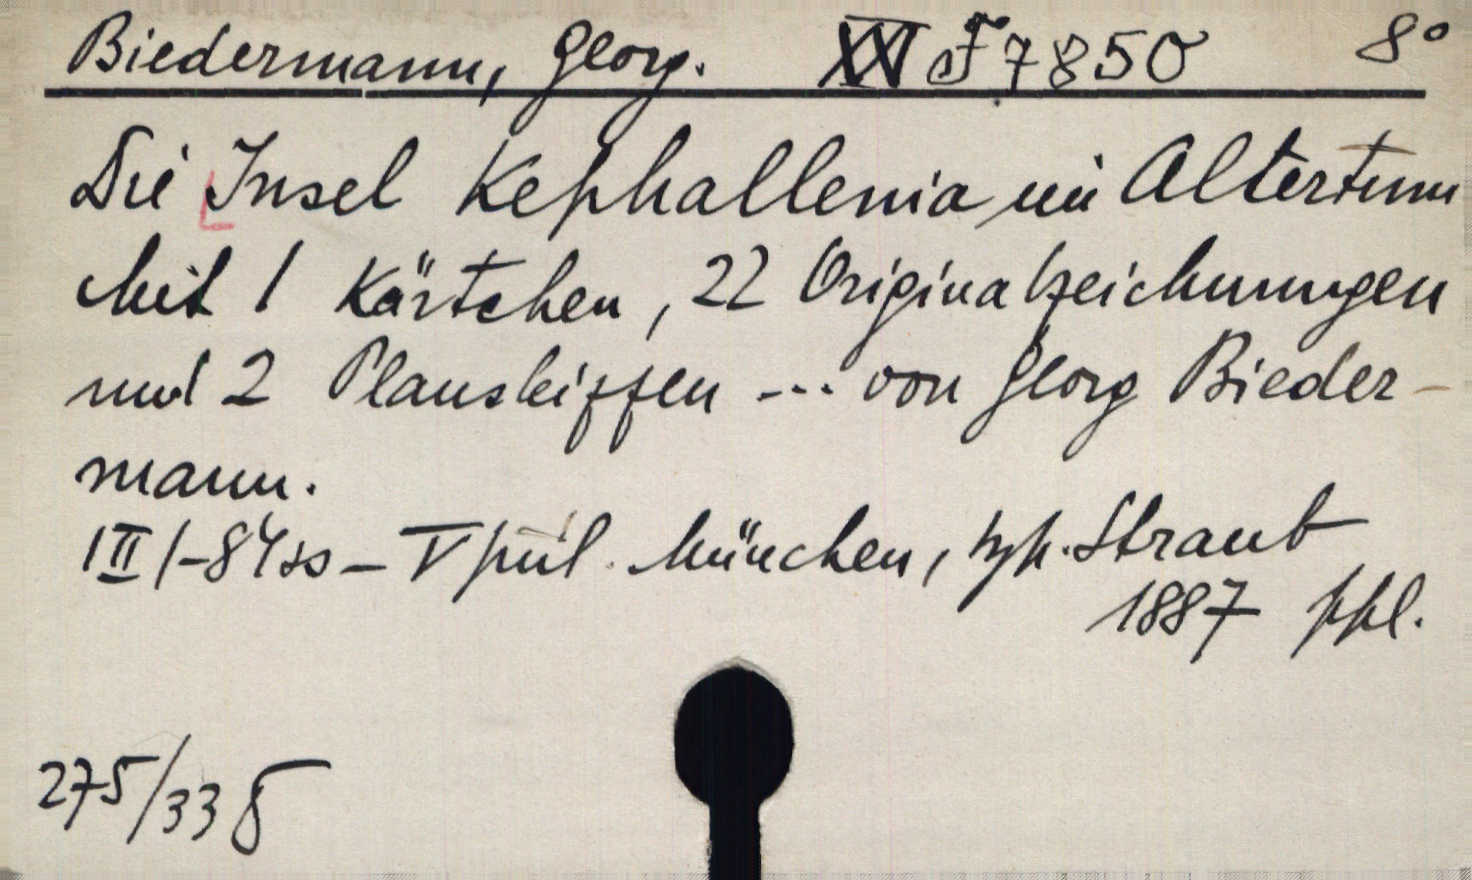 Biedermann, Georg. XV F 7850 8°
Die Insel Kephallenia im Altertum
Mit 1 Kärtchen, 22 Originalzeichnungen
und 2 Planskizzen --- von Georg Bieder-
mann.
München, typ. Straub
1887 ppl.
275/33 δ